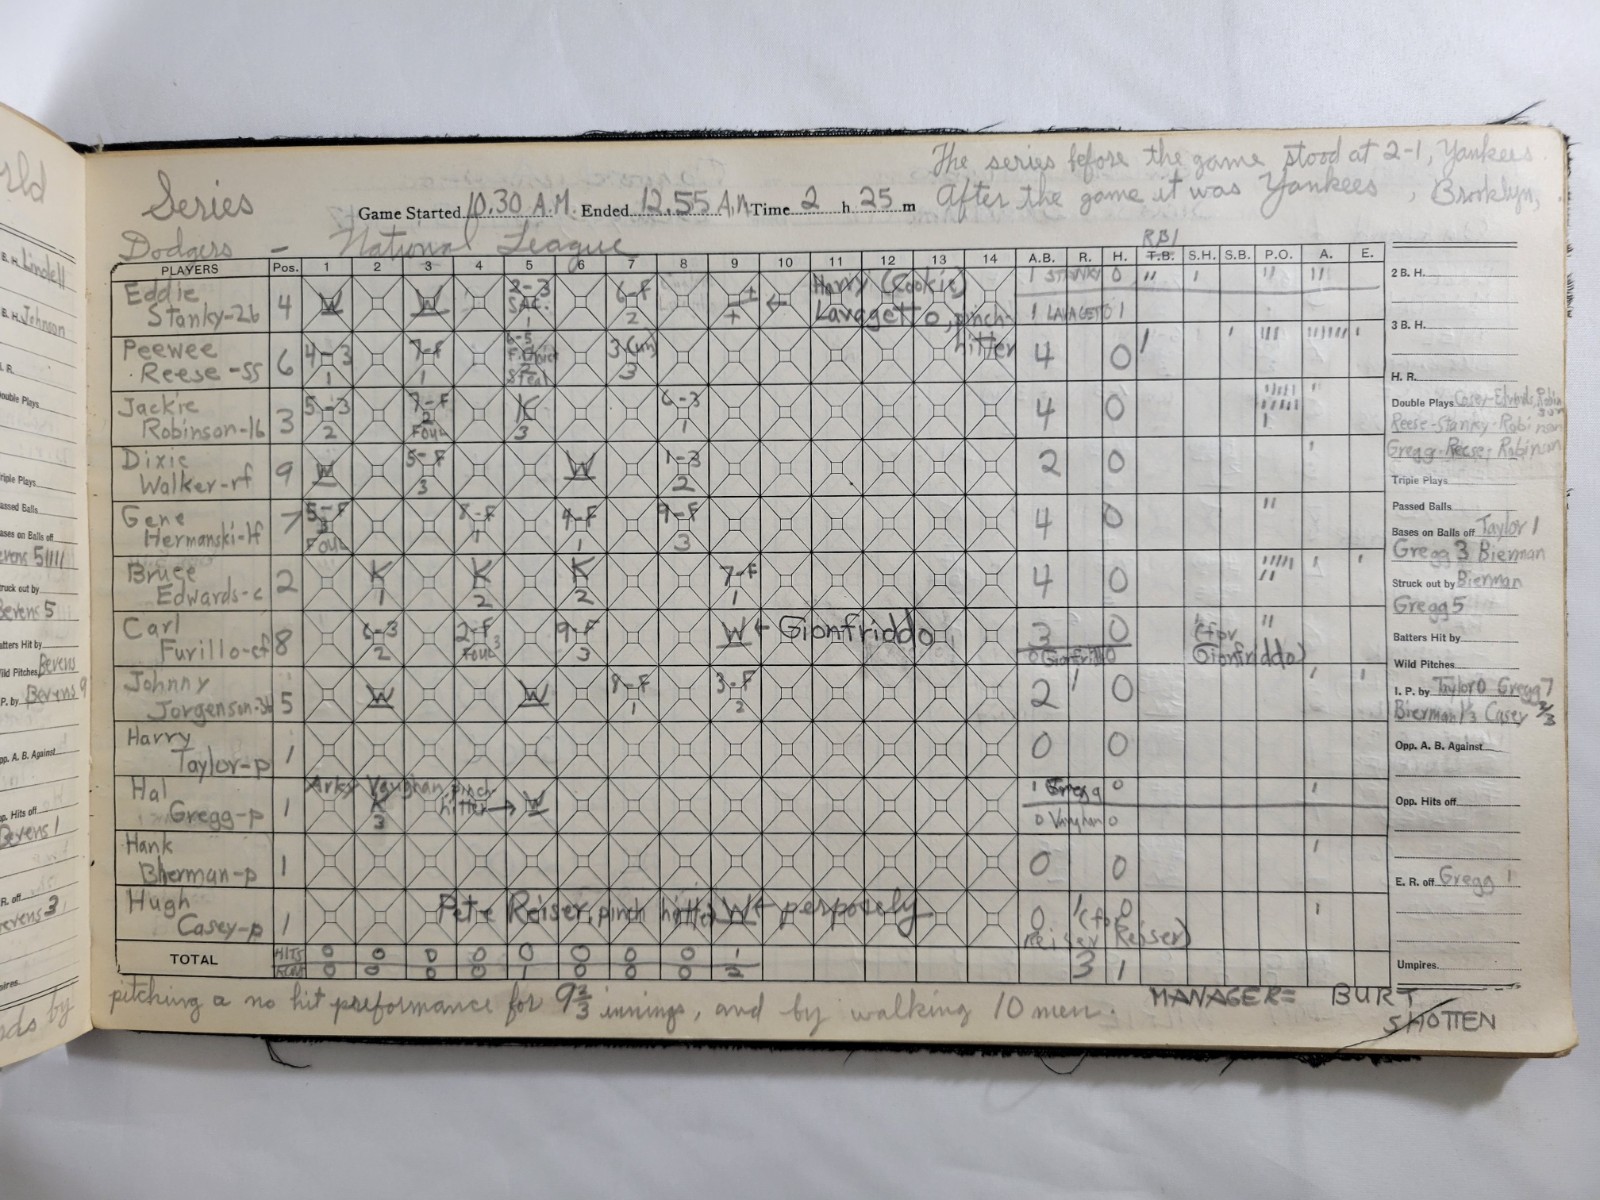 The series before the game stood at 2-1, Yankees.
After the game it was Yankees , Brooklyn, .
Series
Game Started 10,30 A.M. Ended 12,55 A.M. Time 2 h 25 m
Dodgers - National League
RBI
PLAYERS Pos. 1 2 3 4 5 6 7 8 9 10 11 12 13 14 A.B. R. H. T.B. S.H. S.B. P.O. A. E.
Eddie Stanky-2b 4 W W 2-3 SAC. 1 6-F 2 ← Harry (Cookie) Lavagetto, pinch-hitter 1 STANKY 0
1 LAVAGETO 1
Peewee Reese-SS 6 4-3 1 7-F 1 6-5 F. Choice Steal 3(un) 3 4 0
Jackie Robinson-1b 3 5-3 2 7-F 2 FOUL K 3 6-3 1 4 0
Dixie Walker-rf 9 W 5-F 3 W 1-3 2 2 0
Gene Hermanski-lf 7 5-F 3 FOUL 8-F 1 4-F 1 9-F 3 4 0
Bruce Edwards-c 2 K 1 K 2 K 2 7-F 1 4 0
Carl Furillo-cf 8 6-3 2 2-F FOUL 3 9-F 3 W ← Gionfriddo 3 0 (for Gionfriddo)
0 Gionfriddo 0
Johnny Jorgenson-3b 5 W W 8-F 1 3-F 2 2 0
Harry Taylor-p 1 0 0
Hal Gregg-p 1 Arky Vaughan pinch hitter → W K 3 1 Gregg 0
0 Vaughan 0
Hank Bierman-p 1 0 0
Hugh Casey-p 1 Pete Reiser, pinch hitter W ← perposely 0 1 (for Reiser) 0
TOTAL HITS 0 0 0 0 0 0 0 0 1 3 1
RUNS 0 0 0 0 1 0 0 0 2
pitching a no hit preformance for 9 2/3 innings, and by walking 10 men.
MANAGER= BURT SHOTTEN
2 B. H.
3 B. H.
H. R.
Double Plays Casey-Edwards, Robinson
Reese-Stanky-Robinson
Gregg-Reese-Robinson
Triple Plays
Passed Balls
Bases on Balls off Taylor 1
Gregg 3 Bierman
Struck out by Bierman
Gregg 5
Batters Hit by
Wild Pitches
I. P. by Taylor 0 Gregg 7
Bierman 1 1/3 Casey 2/3
Opp. A. B. Against
Opp. Hits off
E. R. off Gregg 1
Umpires
Lindell
Johnson
Double Plays
Triple Plays
Bevens 5
Wild Pitches Bevens
Bevens 9
Opp. A. B. Against
Opp. Hits off
Bevens 1
Bevens 3
by